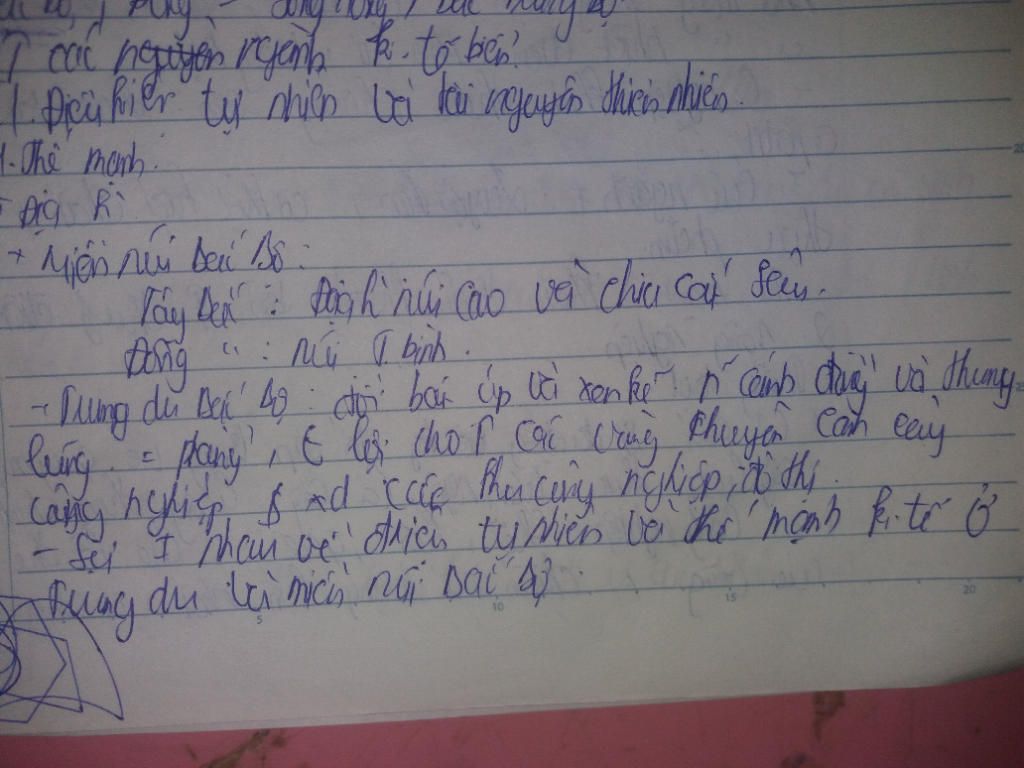 các ngành k. tế biển.
1. Điều kiện tự nhiên và tài nguyên thiên nhiên.
1. Thế mạnh.
- Địa h̀
+ Miền núi Bắc Bộ :
Tây Bắc : Địa h̀ núi cao và chia cắt sâu.
Đông " : núi T bình.
- Trung du Bắc Bộ : đồi bát úp và xen kẽ n~ cánh đồng và thung
lũng = phẳng, lợi cho các vùng chuyên canh cây
công nghiệp & xd các khu công nghiệp, đô thị.
- Sự nhau về tự nhiên và thế mạnh k. tế ở
Trung du và miền núi Bắc Bộ.